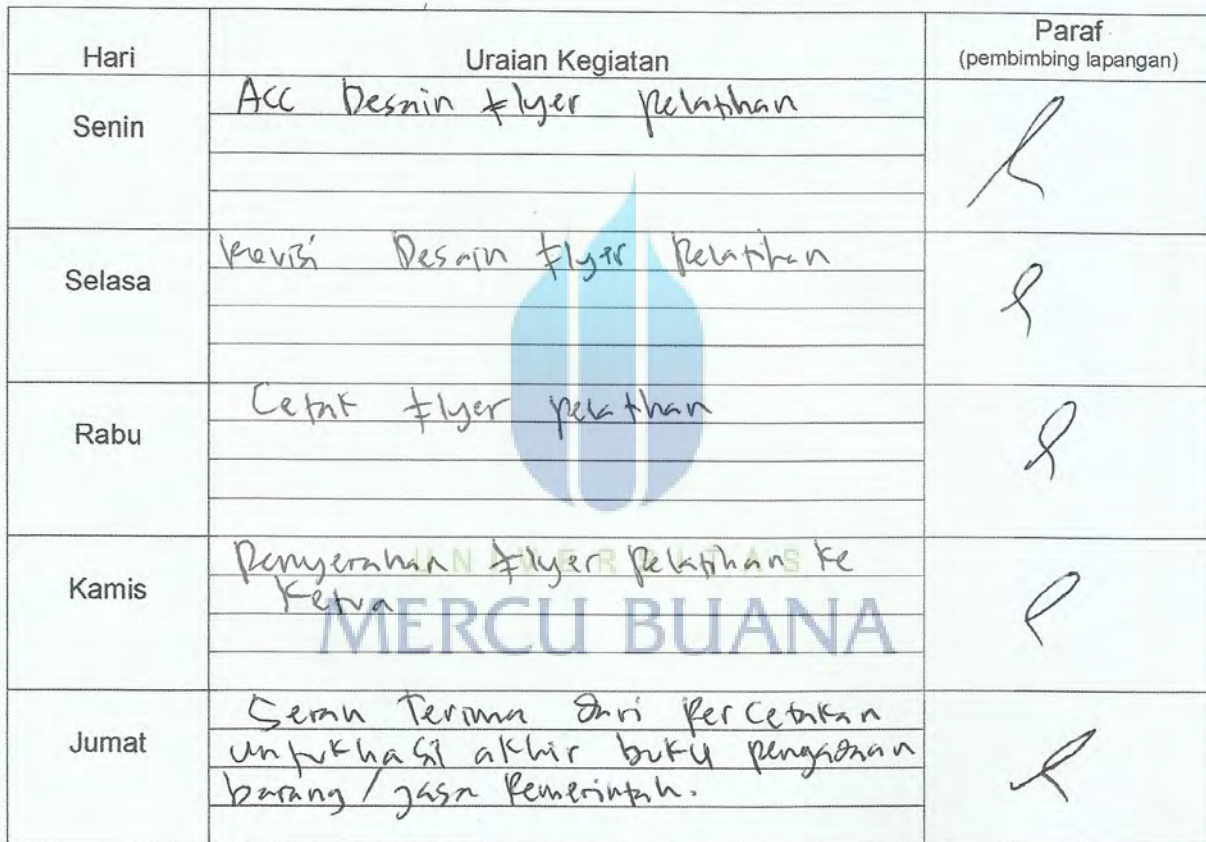 Hari Uraian Kegiatan Paraf
(pembimbing lapangan)
Senin
Acc Desain Flyer pelatihan
Selasa
Revisi Desain Flyer Pelatihan
Rabu
Cetak Flyer pelatihan
Kamis
Penyerahan Flyer Pelatihan ke
Ketua
UNIVERSITAS
MERCU BUANA
Jumat
Serah Terima Dari Percetakan
untuk hasil akhir buku pengadaan
barang/jasa Pemerintah.